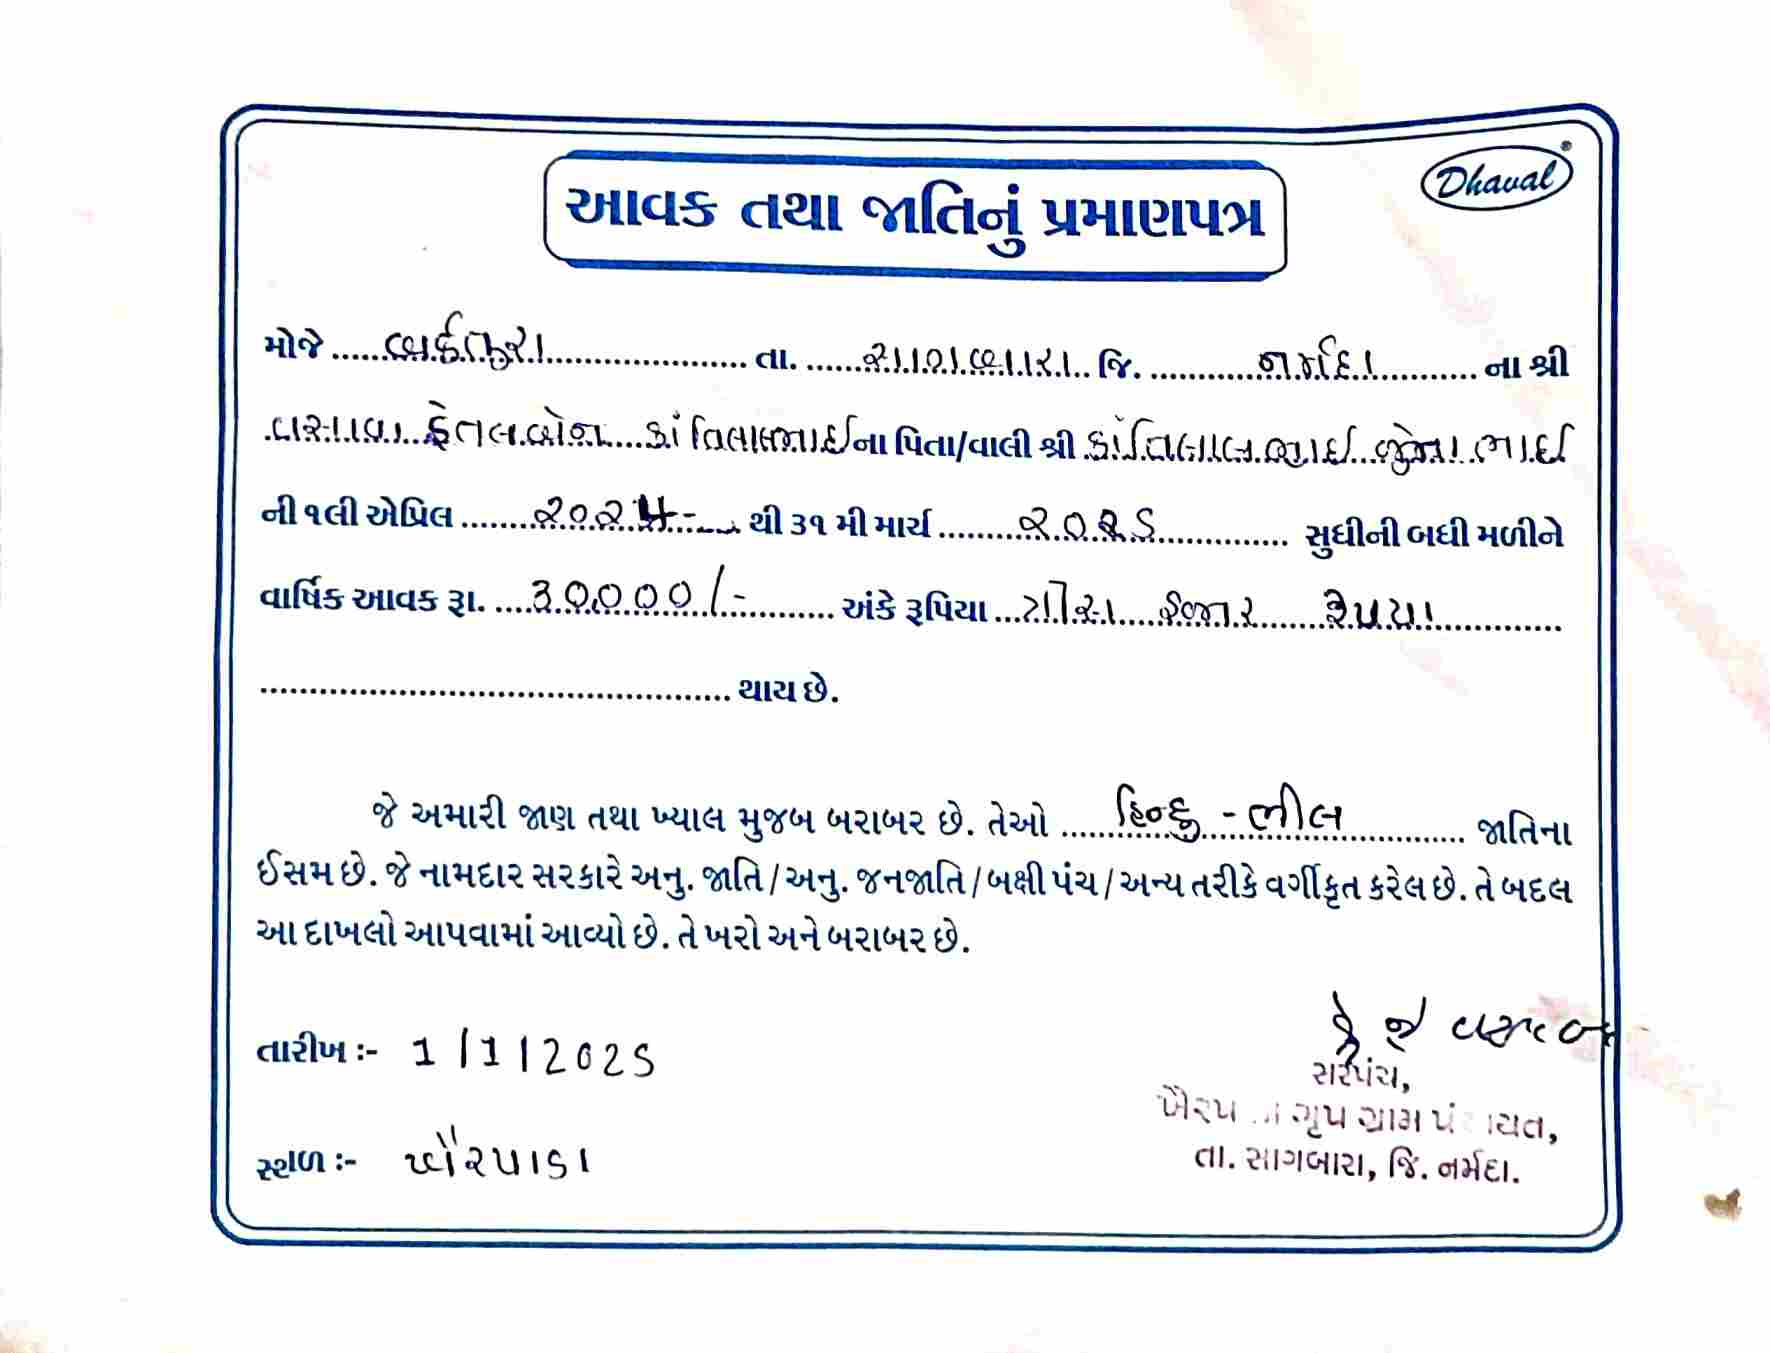 Dhaval
આવક તથા જાતિનું પ્રમાણપત્ર
મોજે ............ તા. સાગબારા જિ. નર્મદા ના શ્રી
વસાવા કેતલબેન કાંતિલાલભાઈ ના પિતા/વાલી શ્રી કાંતિલાલભાઈ ભાઈ
ની ૧લી એપ્રિલ ૨૦૨૪ થી ૩૧ મી માર્ચ ૨૦૨૫ સુધીની બધી મળીને
વાર્ષિક આવક રૂા. ૩૦,૦૦૦/- અંકે રૂપિયા ત્રીસ હજાર રૂપયા
............ થાય છે.
જે અમારી જાણ તથા ખ્યાલ મુજબ બરાબર છે. તેઓ હિન્દુ - ભીલ જાતિના
ઈસમ છે. જે નામદાર સરકારે અનુ. જાતિ/અનુ. જનજાતિ/બક્ષી પંચ/અન્ય તરીકે વર્ગીકૃત કરેલ છે. તે બદલ
આ દાખલો આપવામાં આવ્યો છે. તે ખરો અને બરાબર છે.
તારીખ :- 1/1/2025
સરપંચ,
ગૃપ ગ્રામ પંચાયત,
સ્થળ :- ખૈરપાડા
તા. સાગબારા, જિ. નર્મદા.